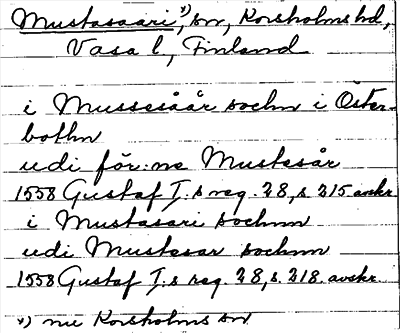 Mustasaari x), sn, Korsholms hd,
Vasa l, Finland
i Mussesåår sochn i Öster-
bothn
udi för:ne Mustesår
1558 Gustaf I.s reg. 28, s. 215 avskr.
i Mustasari sochnn
udi Mustesar sochnn
1558 Gustaf I.s reg. 28, s. 218. avskr.
x) nu Korsholms sn